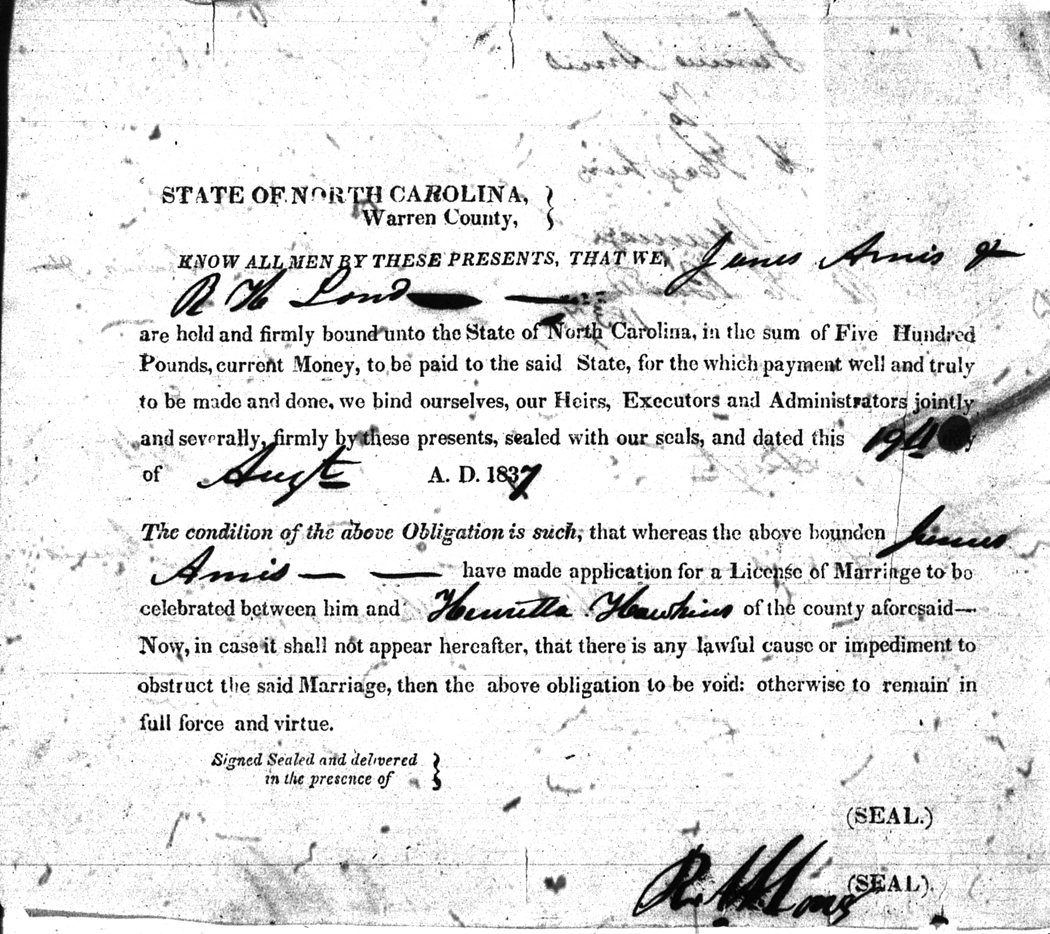 STATE OF NORTH CAROLINA,
Warren County,
KNOW ALL MEN BY THESE PRESENTS, THAT WE, Amis &
R H
are held and firmly bound unto the State of North Carolina, in the sum of Five Hundred
Pounds, current Money, to be paid to the said State, for the which payment well and truly
to be made and done, we bind ourselves, our Heirs, Executors and Administrators jointly
and severally, firmly by these presents, sealed with our seals, and dated this 19
of Augt A. D. 1837
The condition of the above Obligation is such, that whereas the above bounden Junius
Amis — — have made application for a License of Marriage to be
celebrated between him and Henrietta Hawkins of the county aforesaid—
Now, in case it shall not appear hereafter, that there is any lawful cause or impediment to
obstruct the said Marriage, then the above obligation to be void: otherwise to remain in
full force and virtue.
Signed Sealed and delivered
in the presence of
(SEAL.)
R. H. Long (SEAL).